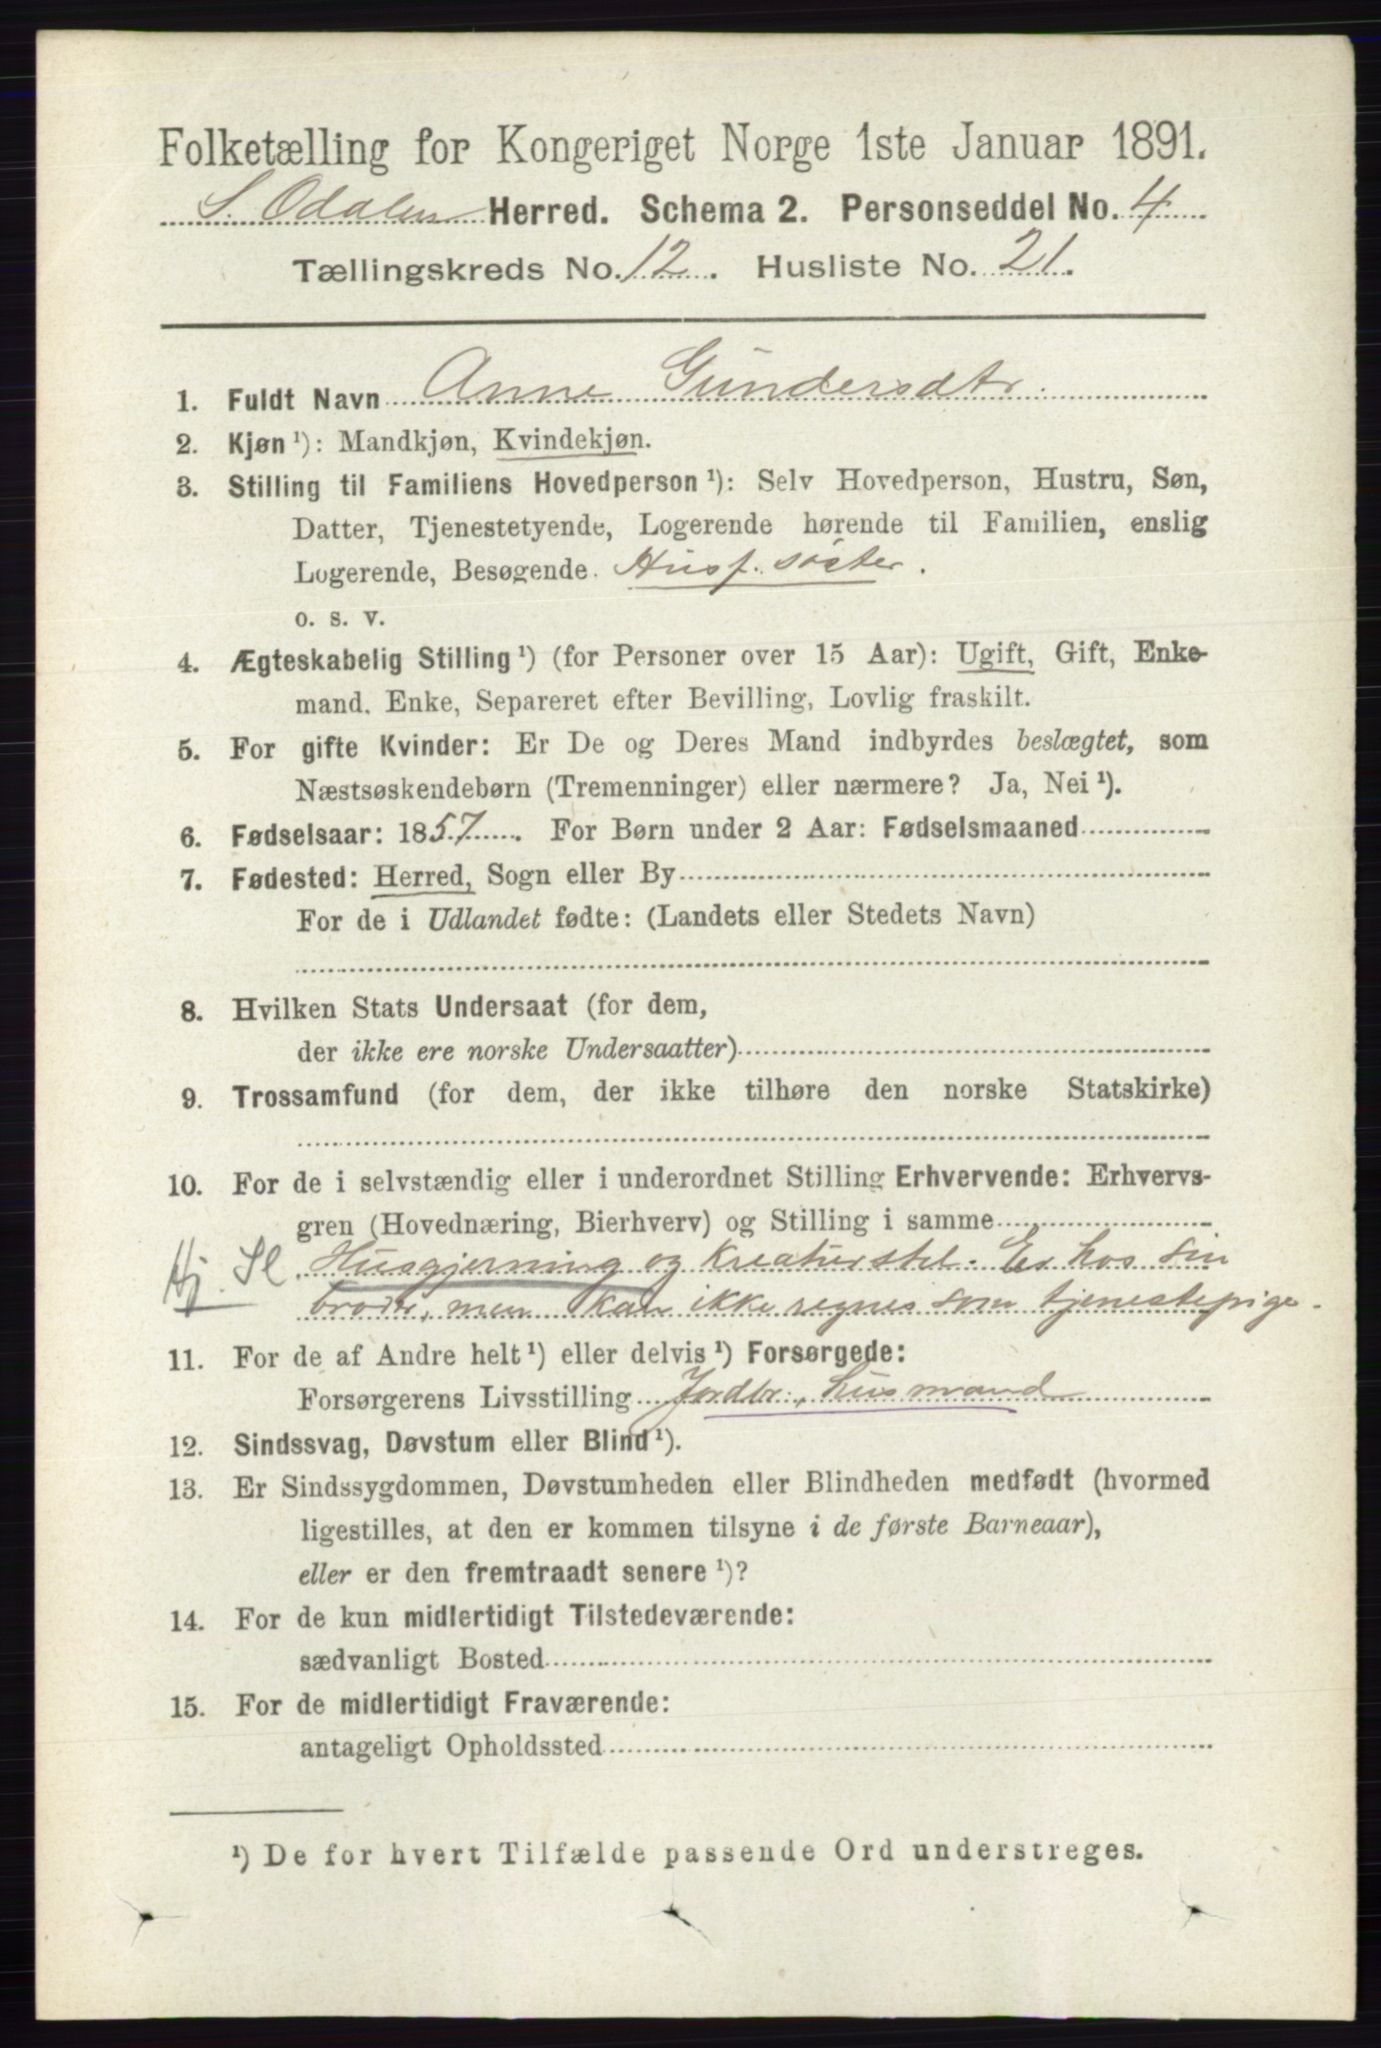 Folketælling for Kongeriget Norge 1ste Januar 1891.
S. Odalen Herred. Schema 2. Personseddel No. 4
Tællingskreds No. 12. Husliste No. 21.
1. Fuldt Navn Anne Gundersdtr.
2. Kjøn ¹): Mandkjøn, Kvindekjøn.
3. Stilling til Familiens Hovedperson ¹): Selv Hovedperson, Hustru, Søn,
Datter, Tjenestetyende, Logerende hørende til Familien, enslig
Logerende, Besøgende. Husf. søster.
o. s. v.
4. Ægteskabelig Stilling ¹) (for Personer over 15 Aar): Ugift, Gift, Enke-
mand, Enke, Separeret efter Bevilling, Lovlig fraskilt.
5. For gifte Kvinder: Er De og Deres Mand indbyrdes beslægtet, som
Næstsøskendebørn (Tremenninger) eller nærmere? Ja, Nei ¹).
6. Fødselsaar: 1857. For Børn under 2 Aar: Fødselsmaaned
7. Fødested: Herred, Sogn eller By
For de i Udlandet fødte: (Landets eller Stedets Navn)
8. Hvilken Stats Undersaat (for dem,
der ikke ere norske Undersaatter)
9. Trossamfund (for dem, der ikke tilhøre den norske Statskirke)
10. For de i selvstændig eller i underordnet Stilling Erhvervende: Erhvervs-
gren (Hovednæring, Bierhverv) og Stilling i samme
Hj. Sl Husgjerning og kreaturstel. Er hos sin
broder, men kan ikke regnes som tjenestepige.
11. For de af Andre helt ¹) eller delvis ¹) Forsørgede:
Forsørgerens Livsstilling Jordbr., husmand
12. Sindssvag, Døvstum eller Blind ¹).
13. Er Sindssygdommen, Døvstumheden eller Blindheden medfødt (hvormed
ligestilles, at den er kommen tilsyne i de første Barneaar),
eller er den fremtraadt senere ¹)?
14. For de kun midlertidigt Tilstedeværende:
sædvanligt Bosted
15. For de midlertidigt Fraværende:
antageligt Opholdssted
¹) De for hvert Tilfælde passende Ord understreges.